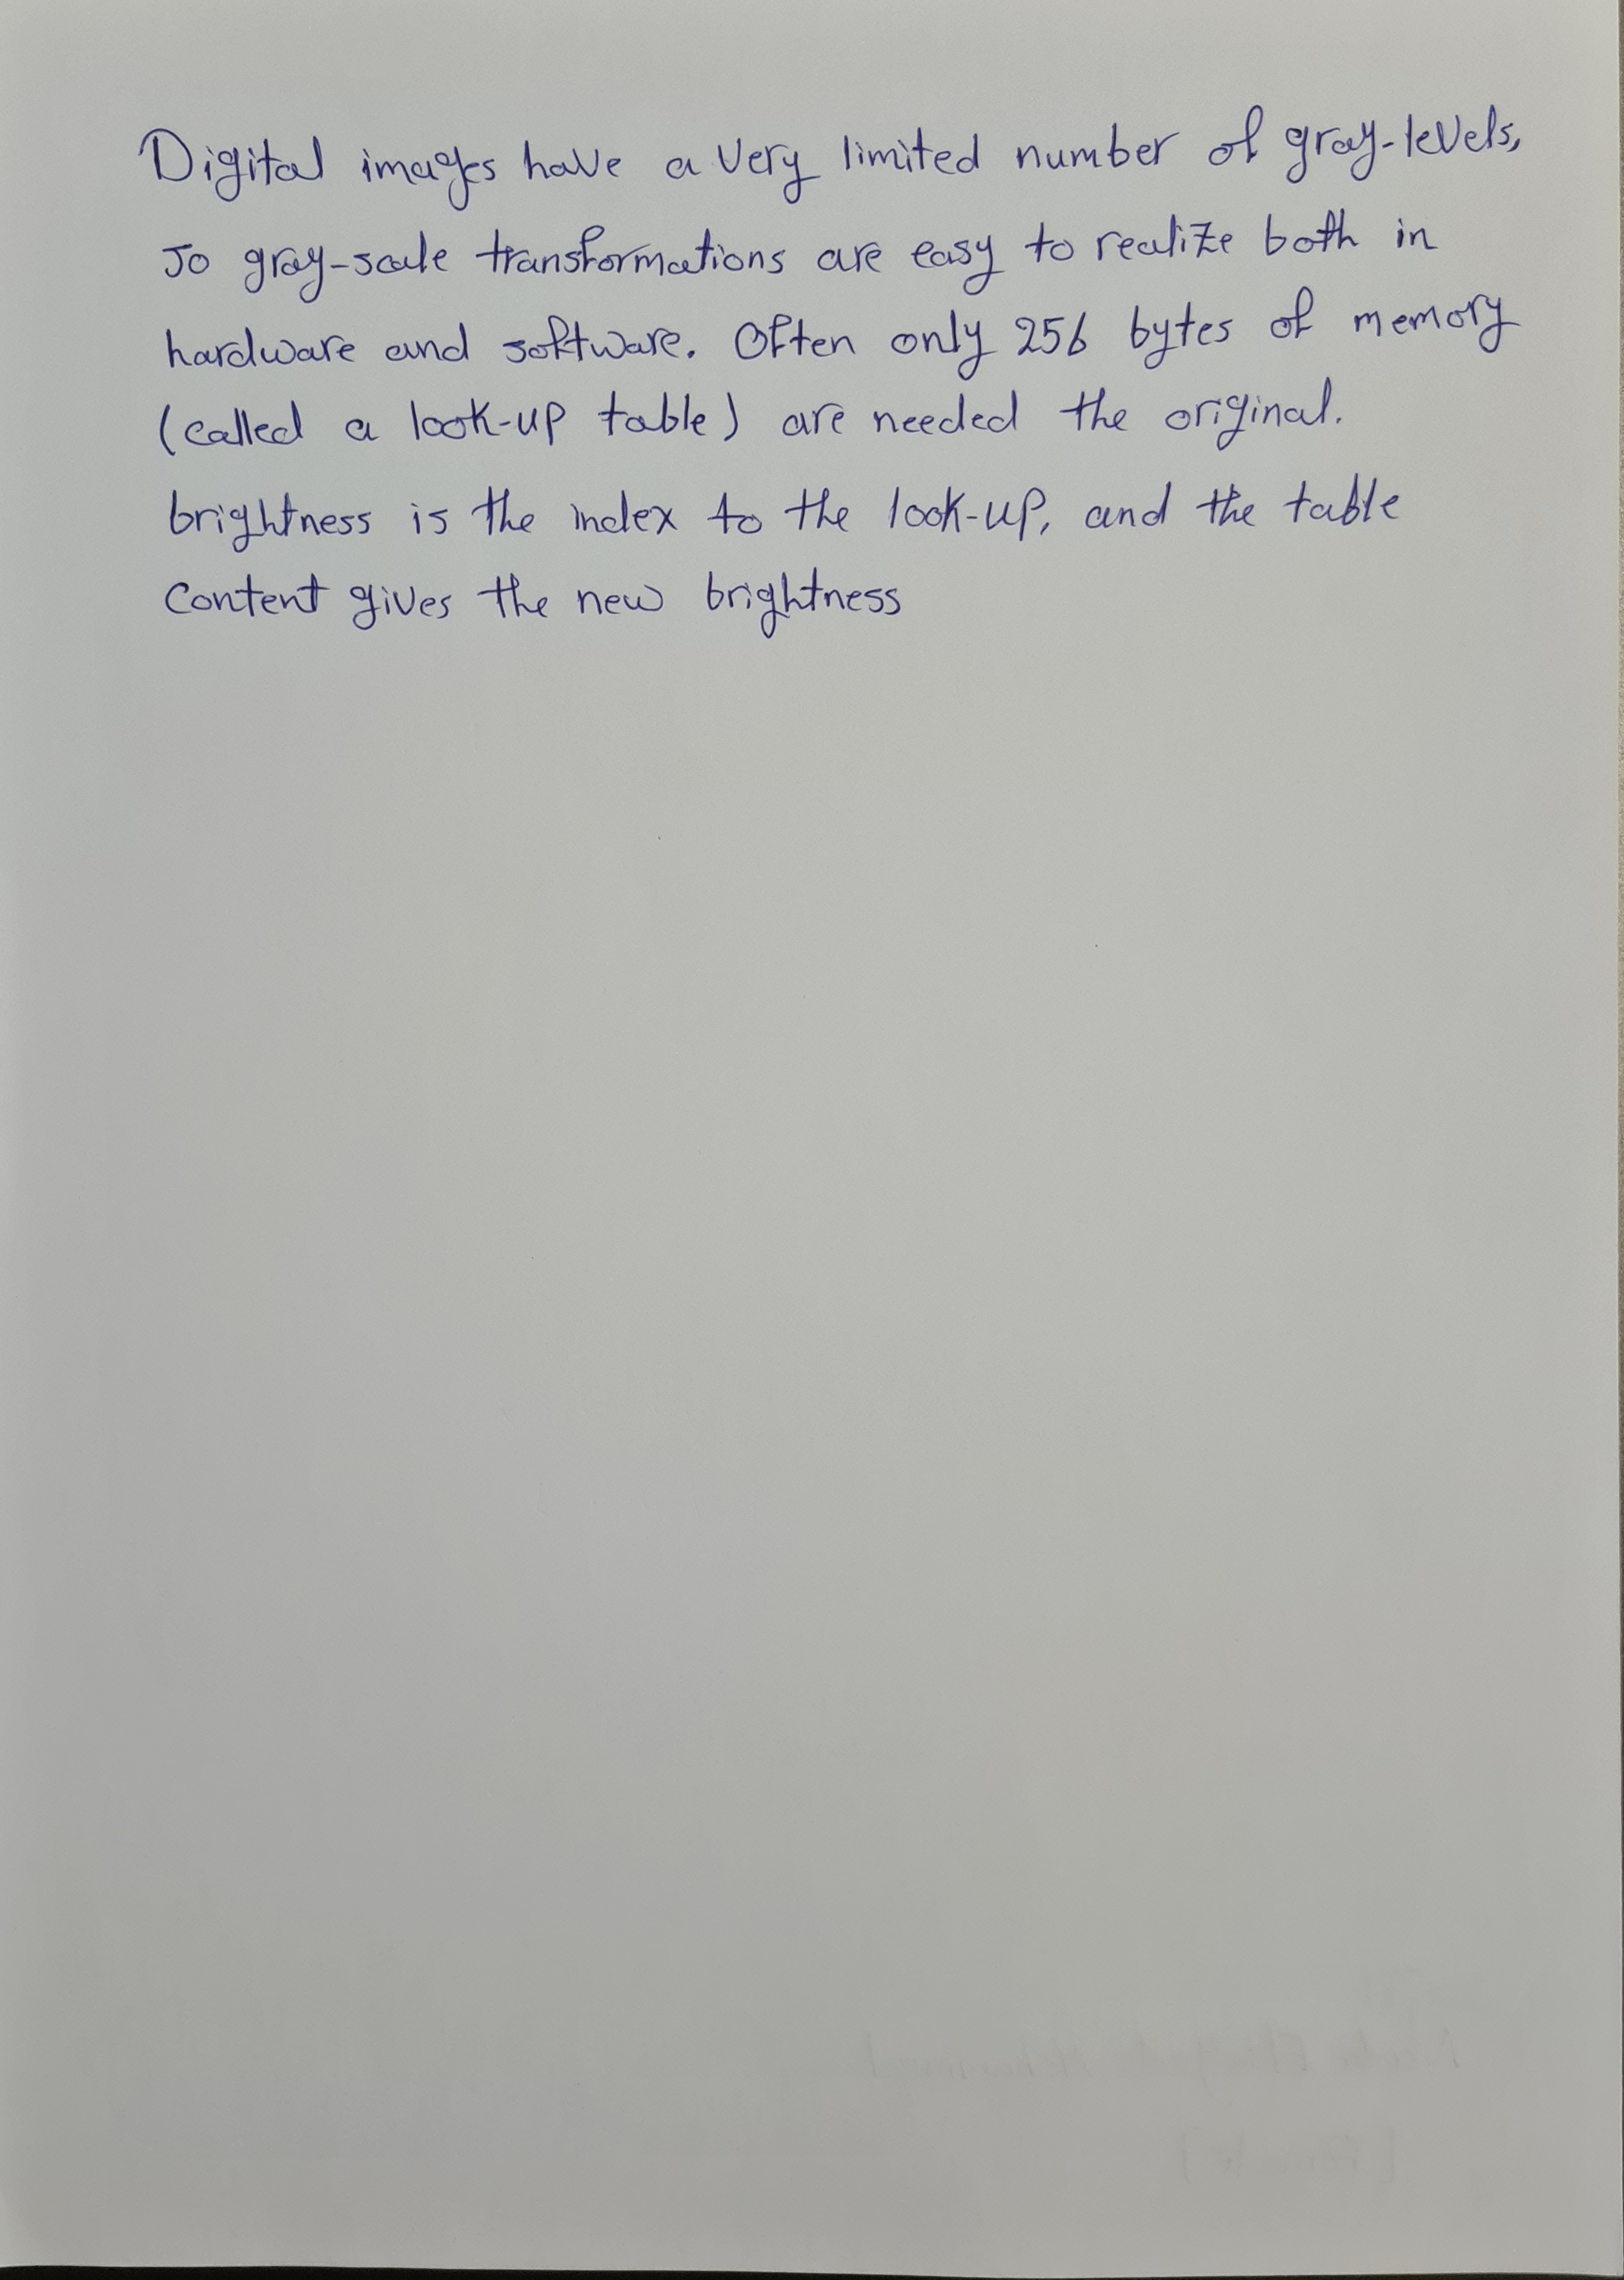 Digital images have a very limited number of gray-levels,
so gray-scale transformations are easy to realize both in
hardware and software. Often only 256 bytes of memory
(called a look-up table) are needed the original.
brightness is the index to the look-up, and the table
Content gives the new brightness